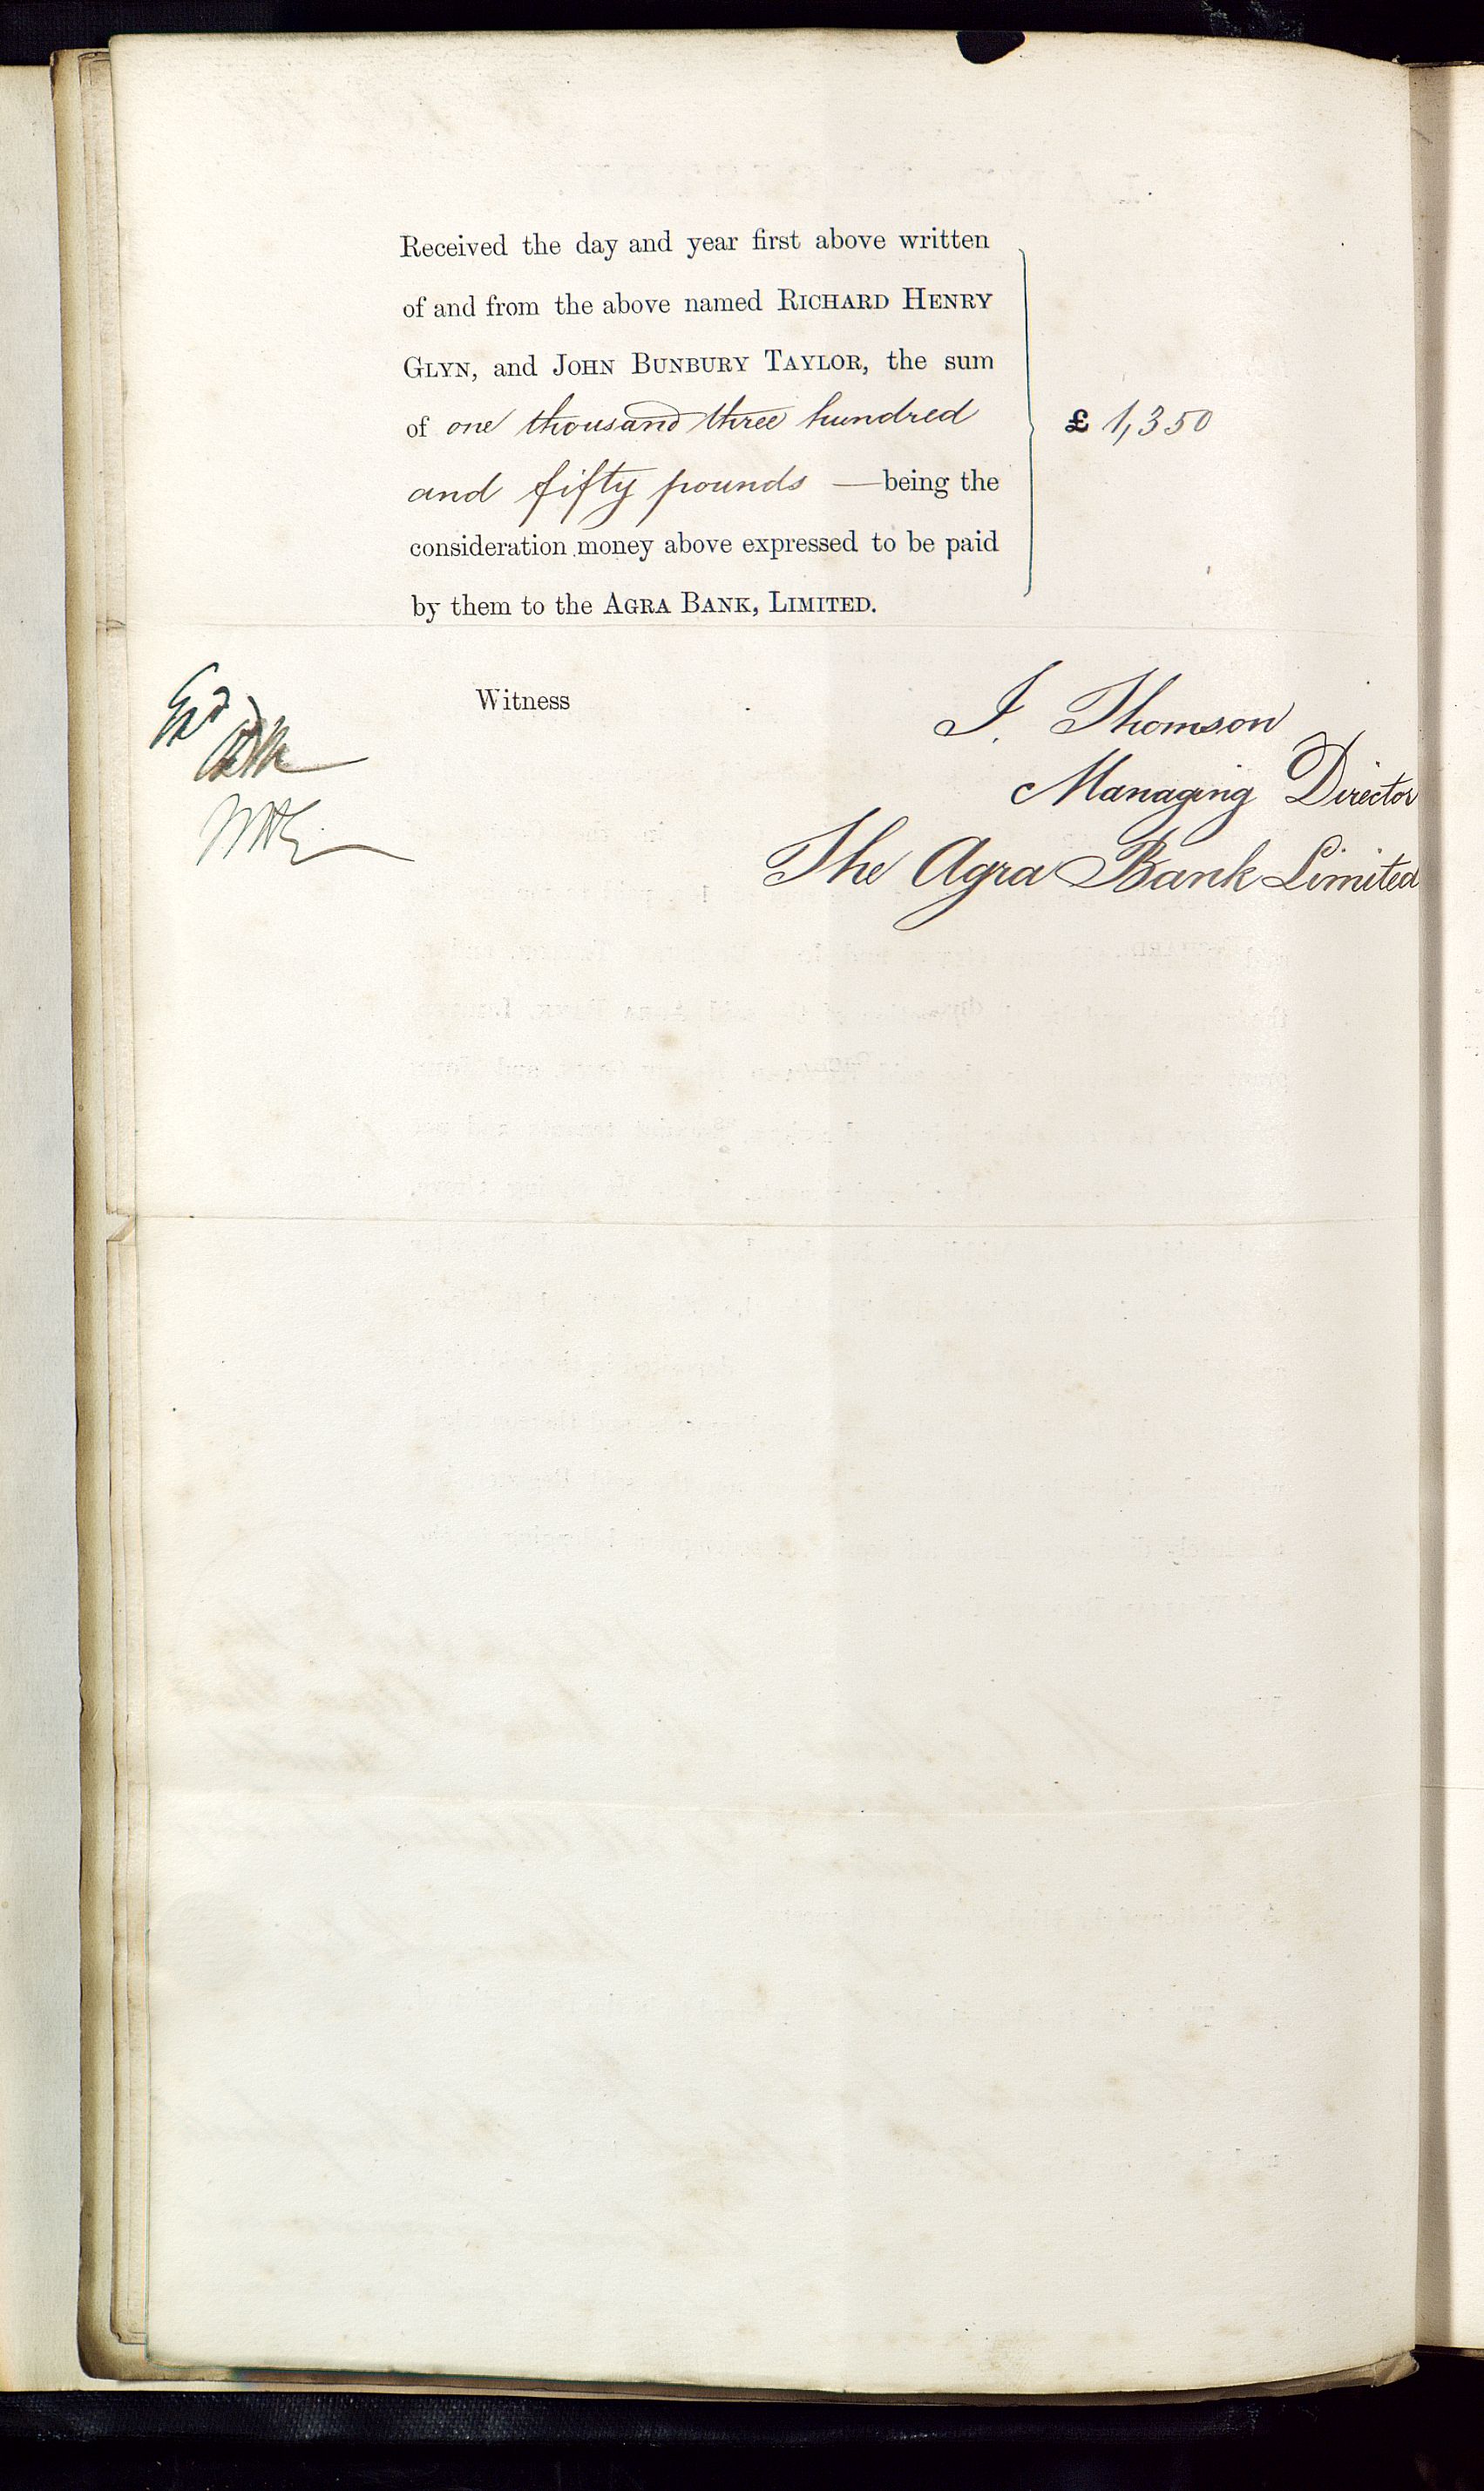 Received the day and year first above written
of and from the above named RICHARD HENRY
GLYN, and JOHN BUNBURY TAYLOR, the sum
of one thousand three hundred
and fifty pounds —being the
consideration money above expressed to be paid
by them to the AGRA BANK, LIMITED.
£ 1,350
Witness
J. Thomson
Managing Director
The Agra Bank Limited